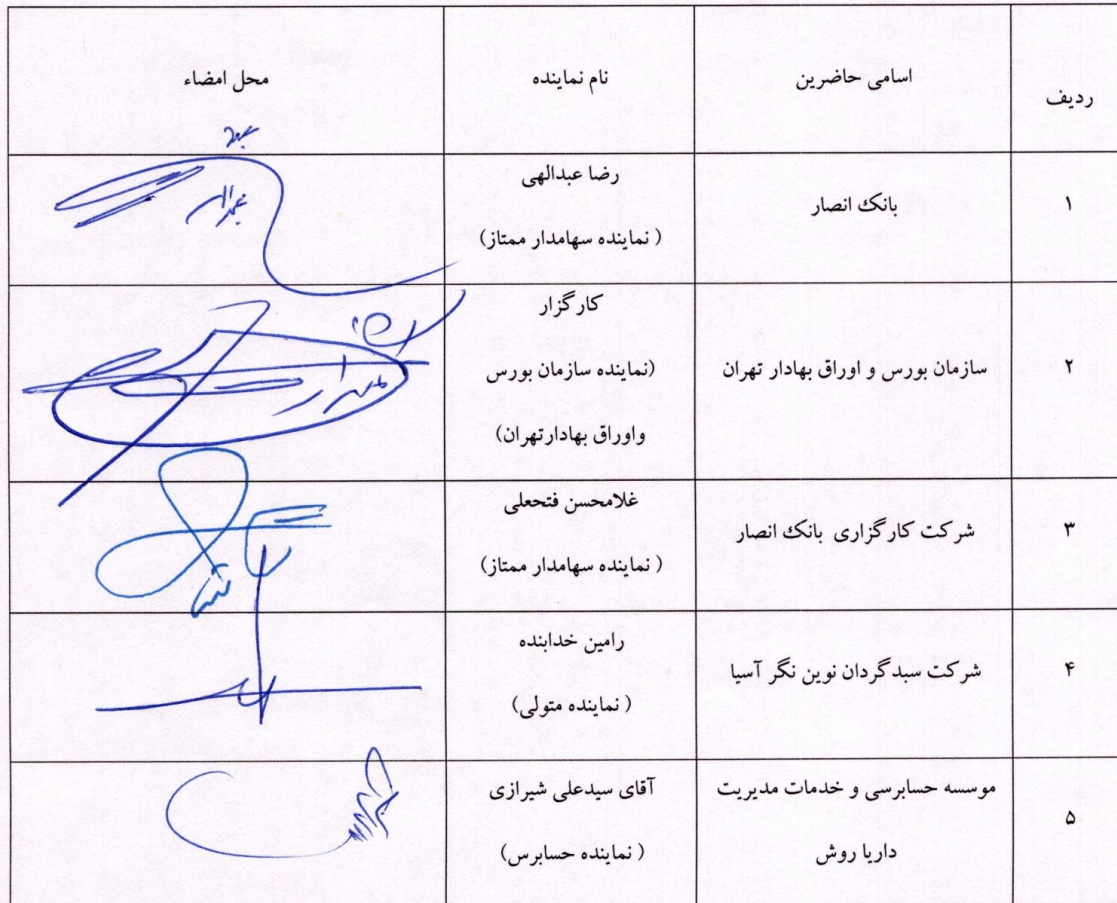 ردیف
اسامی حاضرین
نام نماینده
محل امضاء
۱
بانک انصار
رضا عبدالهی
( نماینده سهامدار ممتاز)
۲
سازمان بورس و اوراق بهادار تهران
کارگزار
(نماینده سازمان بورس
واوراق بهادارتهران)
۳
شرکت کارگزاری بانک انصار
غلامحسن فتحعلی
( نماینده سهامدار ممتاز)
۴
شرکت سبدگردان نوین نگر آسیا
رامین خدابنده
( نماینده متولی)
۵
موسسه حسابرسی و خدمات مدیریت
داریا روش
آقای سیدعلی شیرازی
( نماینده حسابرس)